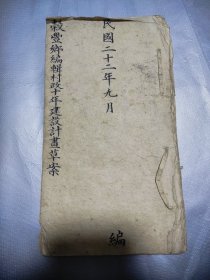 民國二十二年九月
穀豐鄉編輯村政十年建設計畫草案
編